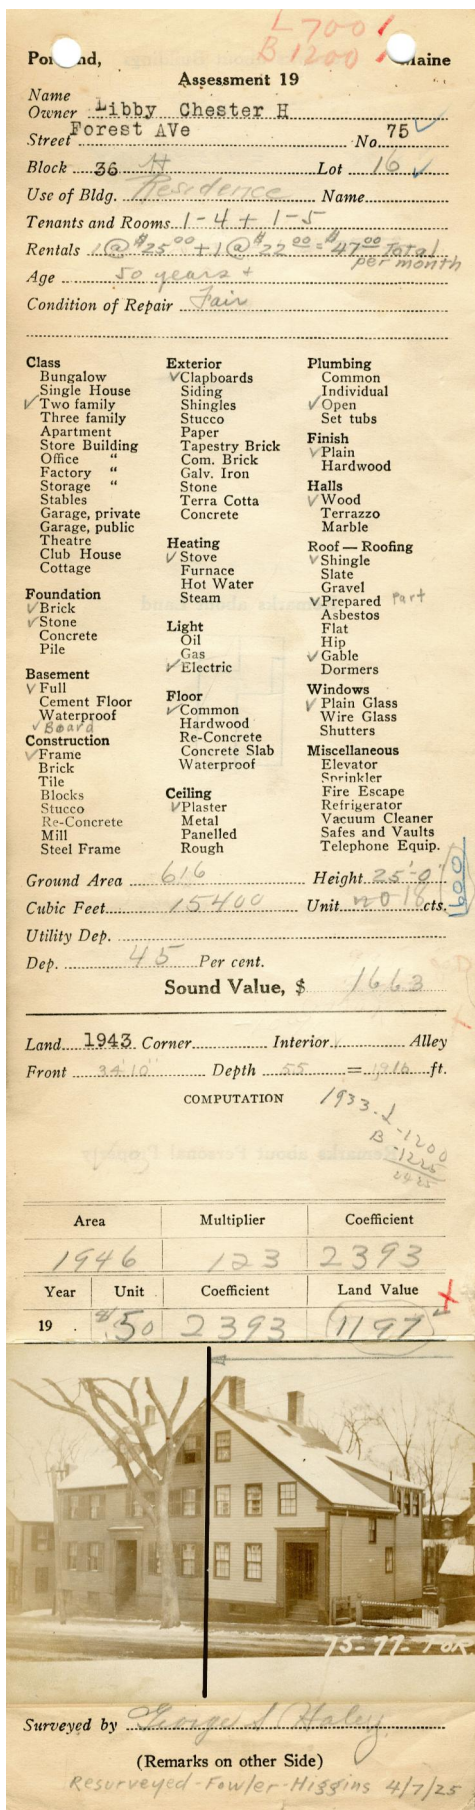 L 700
B 1200
Portland, Maine
Assessment 19
Name
Owner Libby Chester H
Street Forest AVe No. 75
Block 36 H Lot 16
Use of Bldg. Residence Name
Tenants and Rooms 1-4 + 1-5
Rentals 1@$25.00 + 1@$22.00 = $47.00 Total
per month
Age 50 years +
Condition of Repair Fair
Class
Bungalow
Single House
✓ Two family
Three family
Apartment
Store Building
Office "
Factory "
Storage "
Stables
Garage, private
Garage, public
Theatre
Club House
Cottage
Foundation
✓ Brick
✓ Stone
Concrete
Pile
Basement
✓ Full
Cement Floor
Waterproof
✓ Board
Construction
✓ Frame
Brick
Tile
Blocks
Stucco
Re-Concrete
Mill
Steel Frame
Exterior
✓ Clapboards
Siding
Shingles
Stucco
Paper
Tapestry Brick
Com. Brick
Galv. Iron
Stone
Terra Cotta
Concrete
Heating
✓ Stove
Furnace
Hot Water
Steam
Light
Oil
Gas
✓ Electric
Floor
✓ Common
Hardwood
Re-Concrete
Concrete Slab
Waterproof
Ceiling
✓ Plaster
Metal
Panelled
Rough
Plumbing
Common
Individual
✓ Open
Set tubs
Finish
✓ Plain
Hardwood
Halls
✓ Wood
Terrazzo
Marble
Roof — Roofing
✓ Shingle
Slate
Gravel
✓ Prepared Part
Asbestos
Flat
Hip
✓ Gable
Dormers
Windows
✓ Plain Glass
Wire Glass
Shutters
Miscellaneous
Elevator
Sprinkler
Fire Escape
Refrigerator
Vacuum Cleaner
Safes and Vaults
Telephone Equip.
Ground Area 616 Height 25'-0"
Cubic Feet 15400 Unit 18 cts.
1600
Utility Dep.
Dep. 45 Per cent.
Sound Value, $ 1663
Land 1943 Corner Interior Alley
Front 34'10" Depth 55 = 1916 ft.
COMPUTATION
1933 L-1200
B-1225
2425
Area Multiplier Coefficient
1946 123 2393
Year Unit Coefficient Land Value
19 $.50 2393 1197
75-77-FOR
Surveyed by George S Haley
(Remarks on other Side)
Resurveyed-Fowler-Higgins 4/7/25